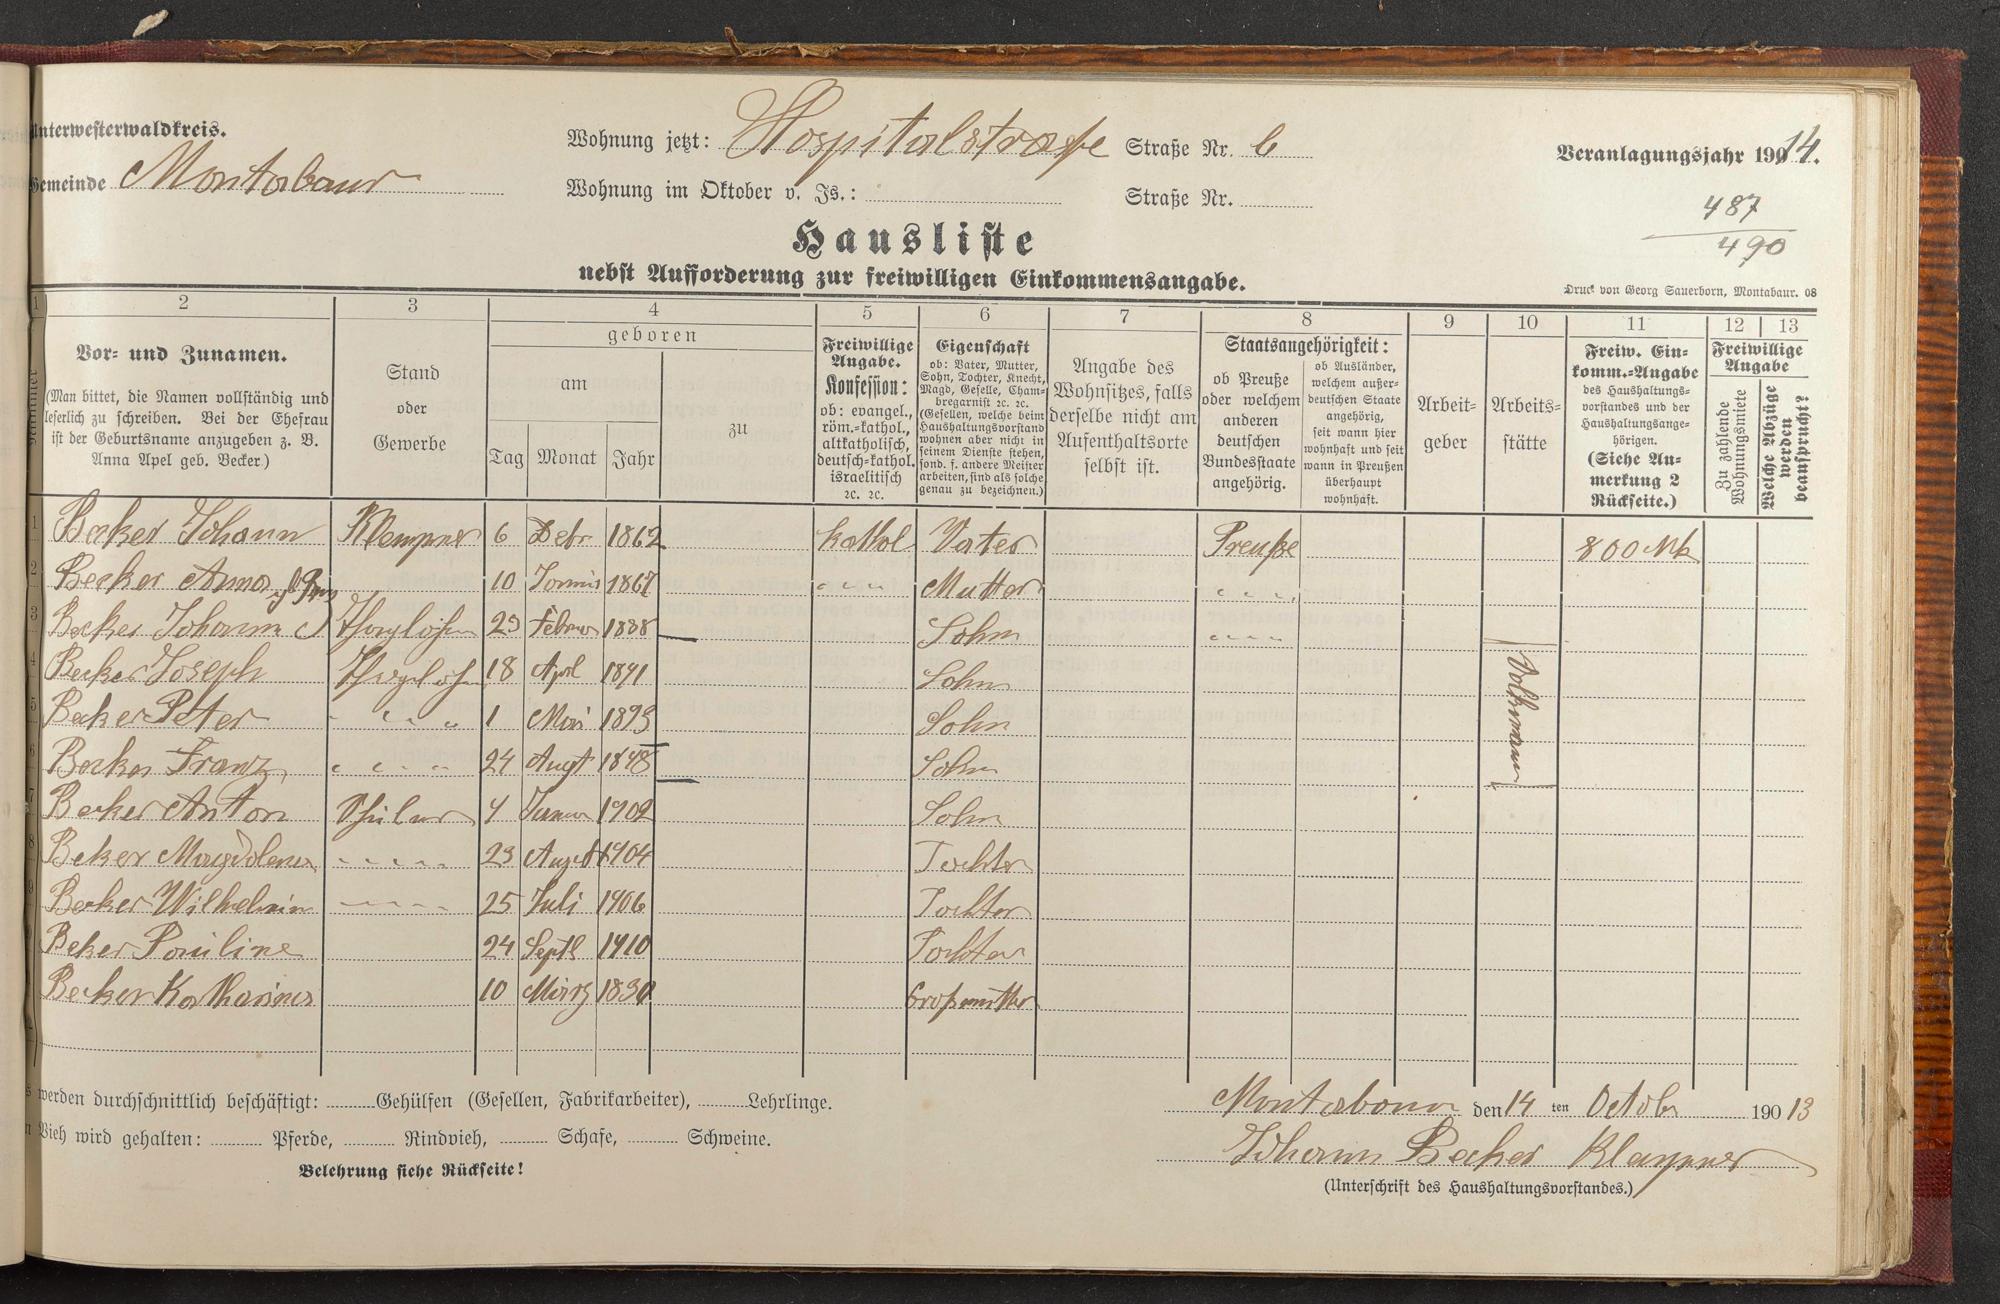 Unterwesterwaldkreis.
Gemeinde Montabaur
Wohnung jetzt: Hospitalstraße Straße Nr. 6
Wohnung im Oktober v. Js.: Straße Nr.
Veranlagungsjahr 1914.
487
490
Hausliste
nebst Aufforderung zur freiwilligen Einkommensangabe.
Druck von Georg Sauerborn, Montabaur. 08
1 2 3 4 5 6 7 8 9 10 11 12 13
Nummer
Vor- und Zunamen.
(Man bittet, die Namen vollständig und
leserlich zu schreiben. Bei der Ehefrau
ist der Geburtsname anzugeben z. B.
Anna Apel geb. Becker.)
Stand
oder
Gewerbe
geboren
am
Tag Monat Jahr
zu
Freiwillige
Angabe.
Konfession:
ob: evangel.,
röm.-kathol.,
altkatholisch,
deutsch-kathol.
israelitisch
2c. 2c.
Eigenschaft
ob: Vater, Mutter,
Sohn, Tochter, Knecht,
Magd, Geselle, Cham-
bregarnist 2c. 2c.
(Gesellen, welche beim
Haushaltungsvorstand
wohnen aber nicht in
seinem Dienste stehen,
sond. f. andere Meister
arbeiten, sind als solche
genau zu bezeichnen.)
Angabe des
Wohnsitzes, falls
derselbe nicht am
Aufenthaltsorte
selbst ist.
Staatsangehörigkeit:
ob Preuße
oder welchem
anderen
deutschen
Bundesstaate
angehörig.
ob Ausländer,
welchem außer-
deutschen Staate
angehörig,
seit wann hier
wohnhaft und seit
wann in Preußen
überhaupt
wohnhaft.
Arbeit-
geber
Arbeits-
stätte
Freiw. Ein-
komm.-Angabe
des Haushaltungs-
vorstandes und der
Haushaltungsange-
hörigen.
(Siehe An-
merkung 2
Rückseite.)
Freiwillige
Angabe
Zu zahlende
Wohnungsmiete
Welche Abzüge
werden
gewünscht?
1 Becker Johann Klempner 6 Debr 1862 kathol Vater Preuße 800 Mk
2 Becker Anna 10 1867 Mutter
3 Becker Johann 23 Februar 1888 Sohn
4 Becker Joseph 18 April 1891 Sohn
5 Becker Peter 1 Mai 1893 Sohn
6 Becker Franz 24 Augt 1898 Sohn
Volkmann
7 Becker Anton Schüler 4 Januar 1902 Sohn
8 Beker Magdalena 23 August 1904 Tochter
9 Becker Wilhelmin 25 Juli 1906 Tochter
Beker Pauline 24 Septb 1910 Tochter
Becker Katharina 10 März Großmutter
werden durchschnittlich beschäftigt: Gehülfen (Gesellen, Fabrikarbeiter), Lehrlinge.
Vieh wird gehalten: Pferde, Rindvieh, Schafe, Schweine.
Belehrung siehe Rückseite!
Montabaur den 14 ten October 190 13
Johann Becker Klempner
(Unterschrift des Haushaltungsvorstandes.)